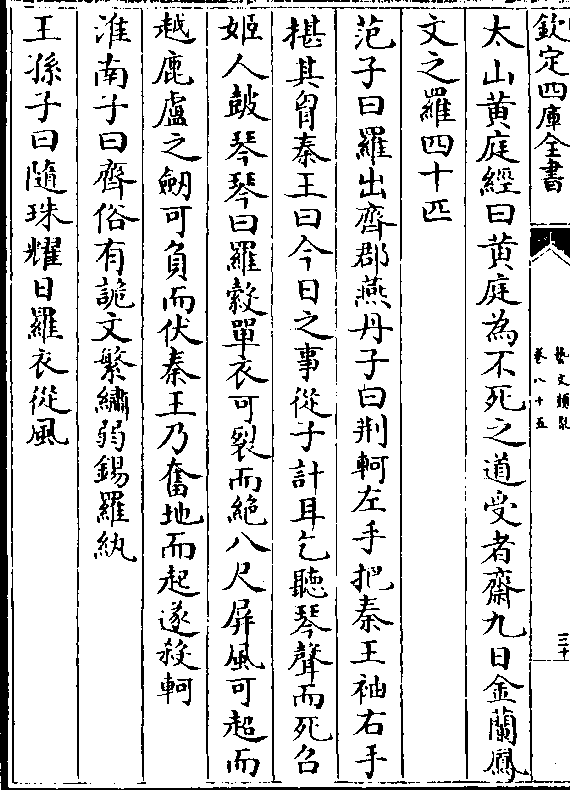 欽定四庫全書
藝文類聚
卷八十五
三十
太山黄庭經曰黄庭為不死之道受者齋九日金蘭鳳
文之羅四十匹
范子曰羅出齊郡燕丹子曰荆軻左手把秦王袖右手
揕其胷秦王曰今日之事從子計耳乞聽琴聲而死召
姬人鼓琴琴曰羅縠單衣可裂而絶八尺屏風可超而
越鹿盧之劒可負而伏秦王乃奮地而起遂殺軻
淮南子曰齊俗有詭文繁繡弱錫羅紈
王孫子曰隨珠耀日羅衣從風